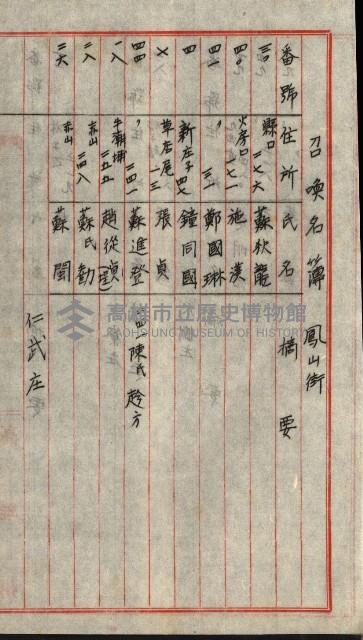 召喚名簿 鳳山街
番號 住所 氏名 摘要
三〇 縣口 二七六 蘇秋龍
四〇 火房口 一七一 施漢
四一 〃 三一 鄭國琳
四 新庄子 四七 鐘同國
草店尾 一三 張貞
四四 〃 二四一 蘇進登 陳氏趁方
一八 牛朝埔 二五五 趙從貞
二八 赤山 二四八 蘇氏勸
二六 赤山 蘇閙
仁武庄
高雄市立歷史博物館
KAOHSIUNG MUSEUM OF HISTORY